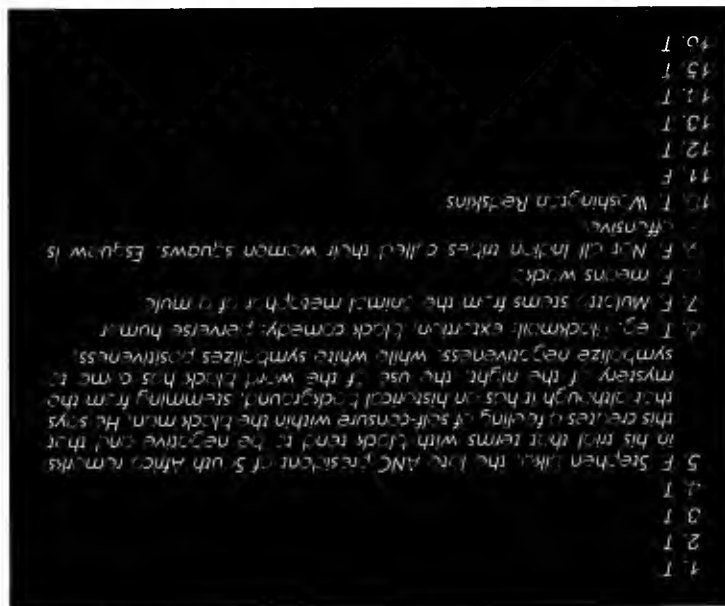 1. T
2. T
3. T
4. T
5. F Stephen Biko, the late ANC president of South Africa remarks
in his trial that terms with black tend to be negative and that
this creates a feeling of self-censure within the black man. He says
that although it has an historical background, stemming from the
mystery of the night, the use of the word black has come to
symbolize negativeness, while white symbolizes positiveness.
6. T eg. blackmail: extortion; black comedy: perverse humor
7. F Mulatto stems from the animal metaphor of a mule
F means works
9. F Not all Indian tribes called their women squaws. Esquaw is
offensive
10. T Washington Redskins
11. F
12. T
13. T
14. T
15. T
16. T